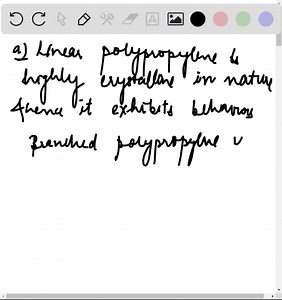 a) Linear polypropylene is
highly crystalline in nature
&hence it exhibits behaviour
Branched polypropylene